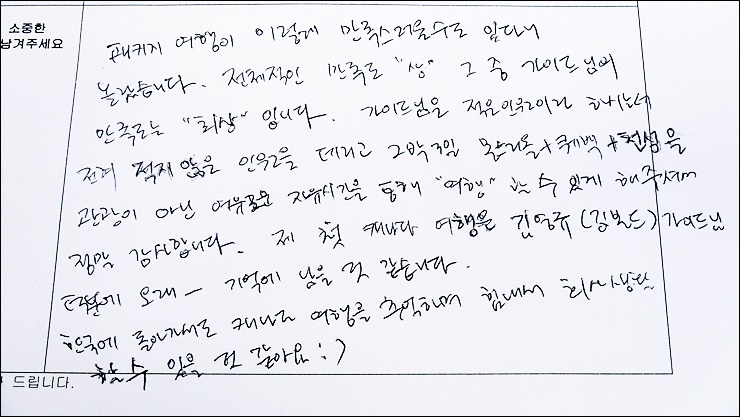 소중한
남겨주세요
패키지 여행이 이렇게 만족스러울수도 있다니
놀랐습니다. 전체적인 만족도 "상" 그 중 가이드님의
만족도는 "최상" 입니다. 가이드님을 적은인원이라 하시는데
전혀 적지 않은 인원을 데리고 2박 3일 몬트리올+퀘백+천섬을
관광이 아닌 여유로운 자유시간을 통해 "여행" 할 수 있게 해주셔서
정말 감사합니다. 제 첫 캐나다 여행을 김영규(김빌드)가이드님
덕분에 오래- 기억에 남을 것 같습니다.
한국에 돌아가서도 캐나다 여행을 추억하며 힘내서 회사생활
할 수 있을 것 같아요 :)
드립니다.